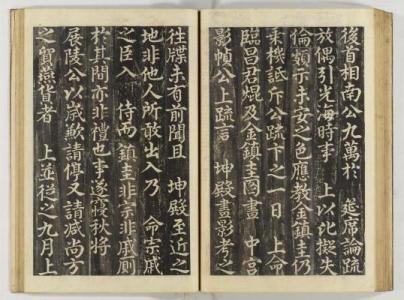 後首相南公九萬於 筵席論疏
放偶引光海時事 上以比擬失
倫顯示未安之色應教金鎮圭仍
乘機詆斥公疏卞之一日 上命
臨昌君焜及金鎮圭圖畫 中宮
影幀公上疏言 坤殿畫影考之
往牒未有前聞且 坤殿至近之
地非他人所敢出入乃 命宗戚
之臣入 侍而鎮圭非宗非戚廁
於其間亦非禮也事遂寢秋將
展陵公以歲歉請停又請减尚方
之貿燕貨者 上並從之九月上